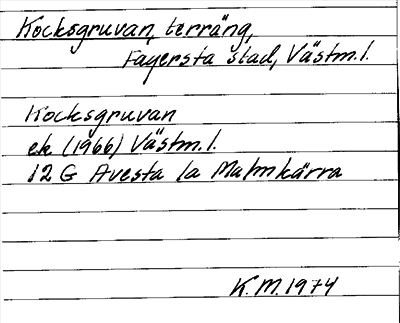 Kocksgruvan, terräng,
Fagersta stad, Västm.l.
Kocksgruvan
ek (1966) Västm.l.
12 G Avesta 1a Malmkärra
K.M. 1974